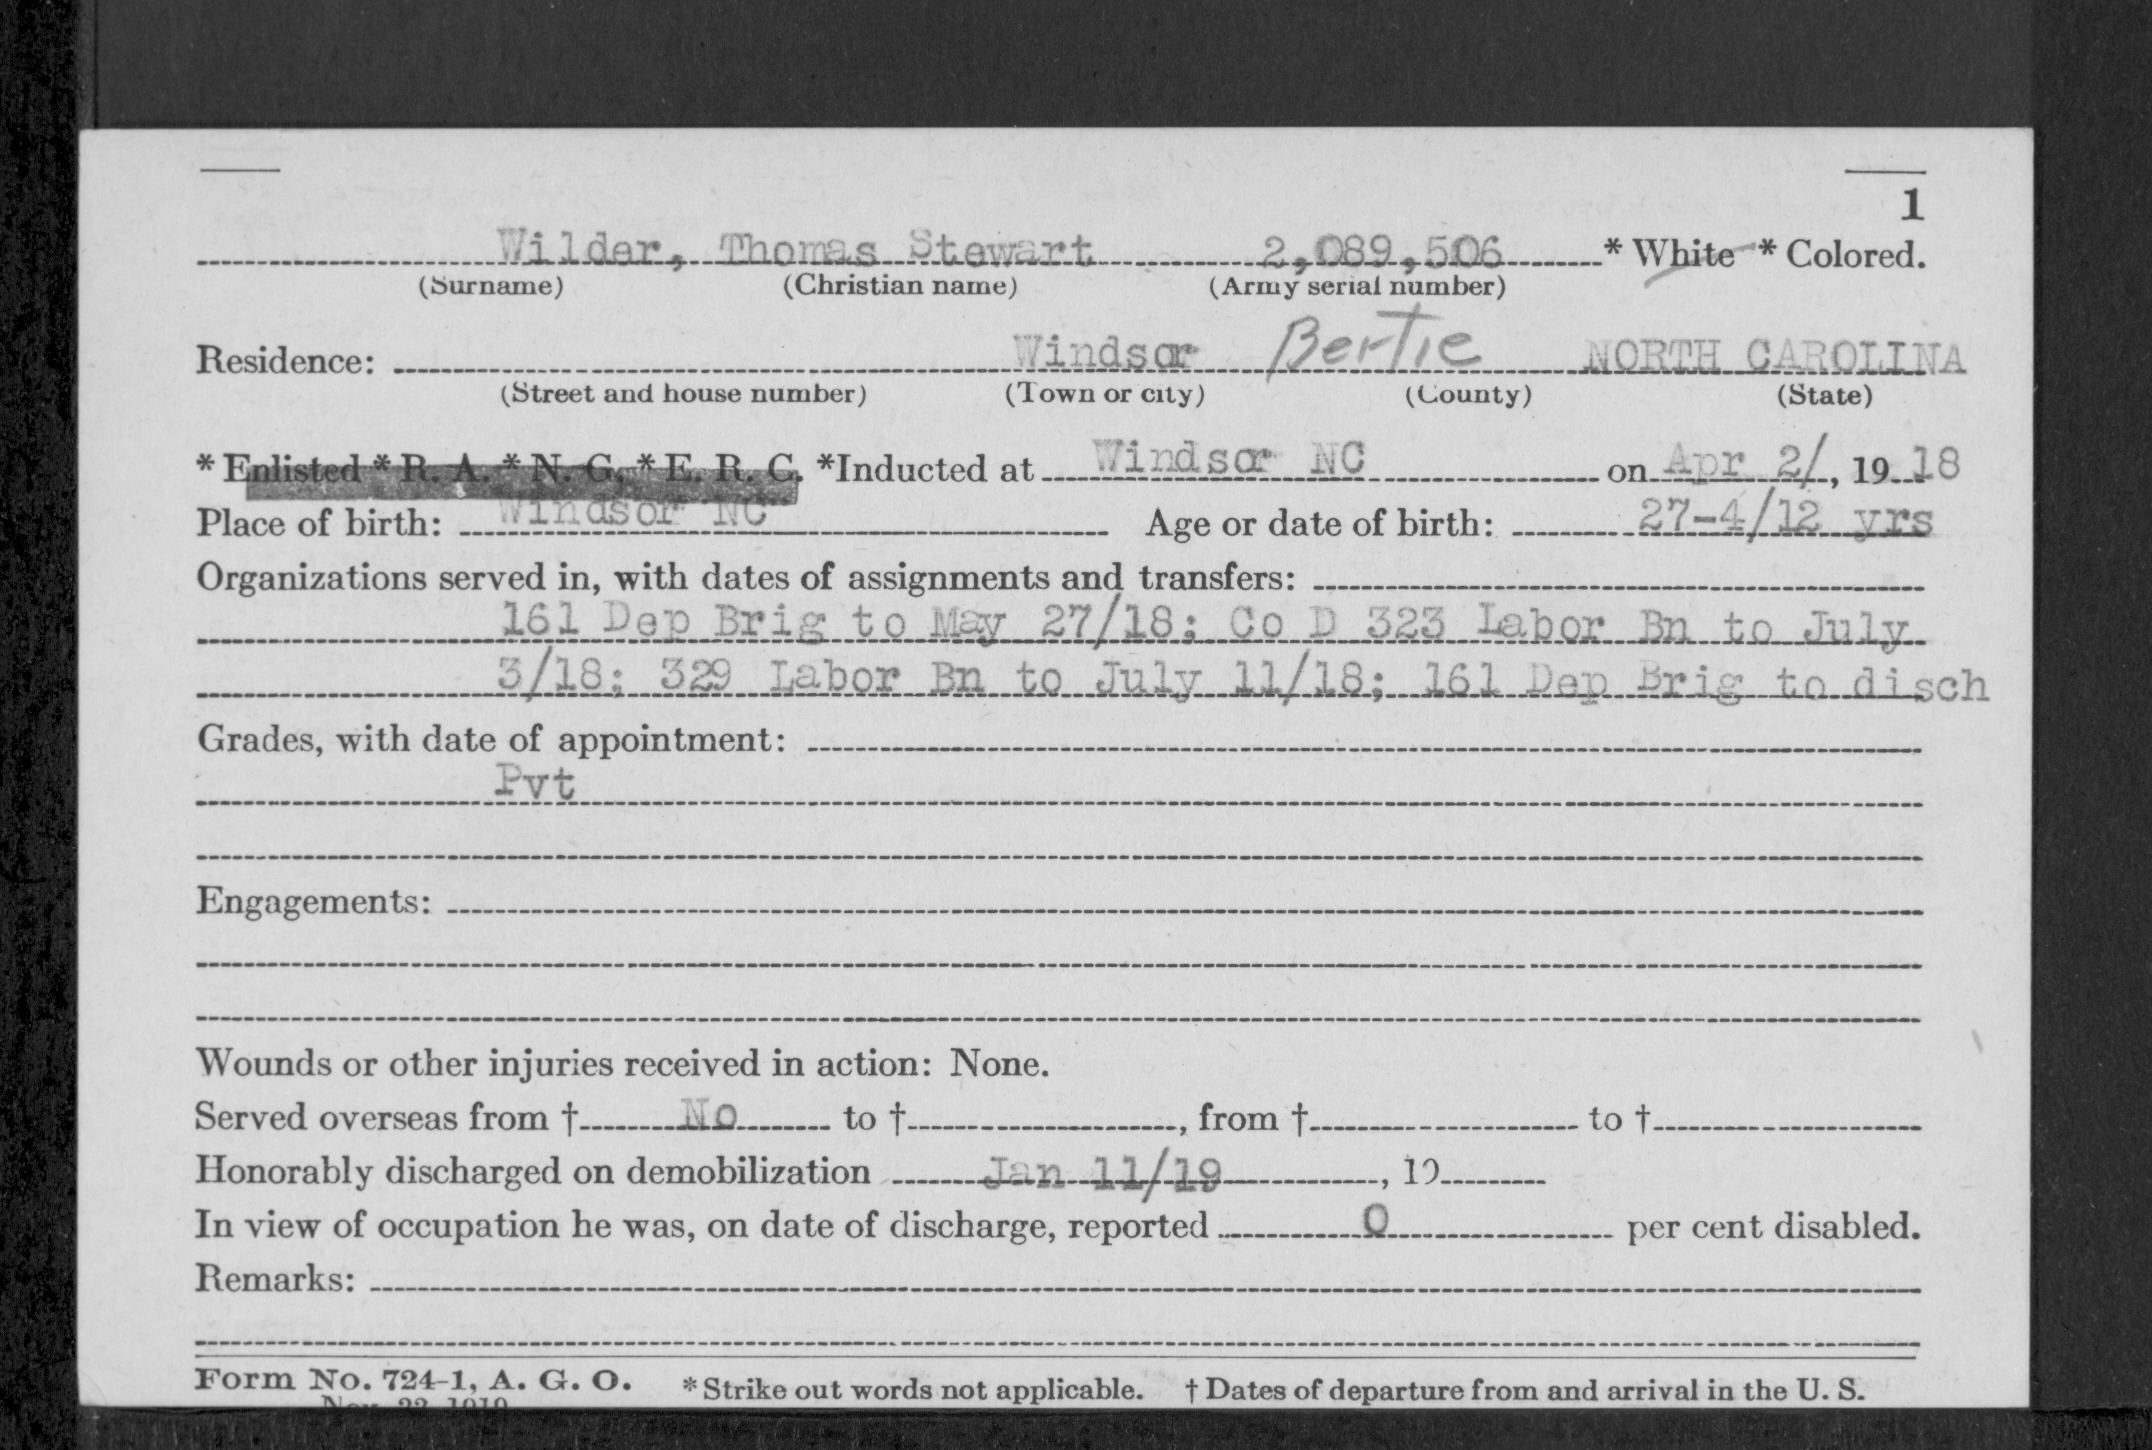 1
Wilder, Thomas Stewart 2,089,506 * White * Colored.
(Surname) (Christian name) (Army serial number)
Residence: Windsor Bertie NORTH CAROLINA
(Street and house number) (Town or city) (County) (State)
* Enlisted * R. A. * N. G. * E. R. C. *Inducted at Windsor NC on Apr 2/, 19 18
Place of birth: Windsor NC Age or date of birth: 27-4/12 yrs
Organizations served in, with dates of assignments and transfers:
161 Dep Brig to May 27/18; Co D 323 Labor Bn to July
3/18; 329 Labor Bn to July 11/18; 161 Dep Brig to disch
Grades, with date of appointment:
Pvt
Engagements:
Wounds or other injuries received in action: None.
Served overseas from † No to †, from † to †
Honorably discharged on demobilization Jan 11/19, 19
In view of occupation he was, on date of discharge, reported 0 per cent disabled.
Remarks:
Form No. 724-1, A. G. O. * Strike out words not applicable. † Dates of departure from and arrival in the U. S.
Nov. 22 1919